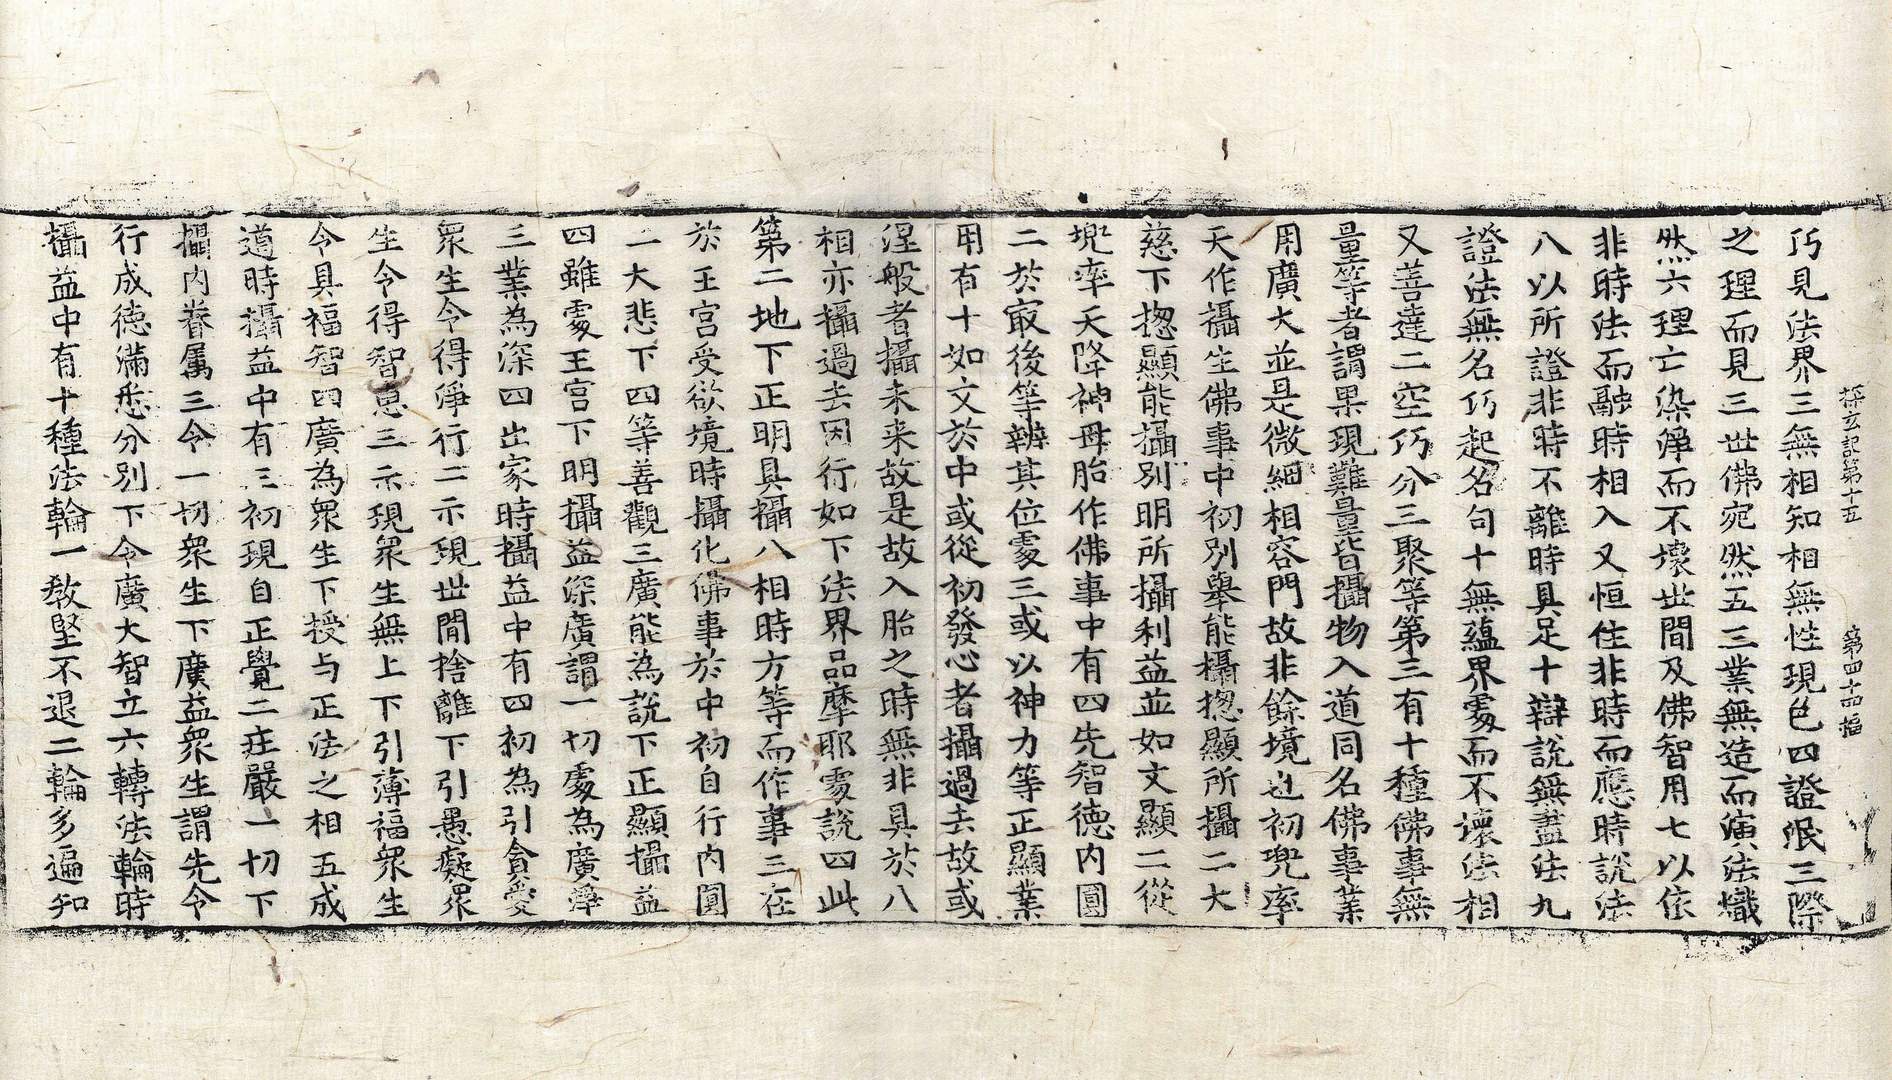 探玄記第十五　第四十四幅
巧見法界三無相知相無性現色四證泯三際
之理而見三世佛宛然五三業無造而演法熾
然六理亡染淨而不壞世間及佛智用七以依
非時法而融時相入又恒住非時而應時說法
八以所證非時不離時具足十辯說無盡法九
證法無名巧起名句十無蘊界處而不壞法相
又善達二空巧分三聚等第三有十種佛事無
量等者謂果現難量皆攝物入道同名佛事業
用廣大並是微細相容門故非餘境也初兜率
天作攝生佛事中初別舉能攝揔顯所攝二大
慈下揔顯能攝別明所攝利益並如文顯二從
兜率天降神母胎作佛事中有四先智德內圓
二於㝡後等辨其位處三或以神力等正顯業
用有十如文於中或從初發心者攝過去故或
涅般者攝未来故是故入胎之時無非具於八
相亦攝過去因行如下法界品摩耶處說四此
第二地下正明具攝八相時方等而作事三在
於王宮受欲境時攝化佛事於中初自行內圓
二大悲下四等善觀三廣能為說下正顯攝益
四雖處王宮下明攝益深廣謂一切處為廣淨
三業為深四出家時攝益中有四初為引貪愛
眾生令得淨行二示現世間捨離下引愚癡眾
生令得智恵三示現眾生無上下引薄福眾生
令具福智四廣為眾生下授与正法之相五成
道時攝益中有三初現自正覺二莊嚴一切下
攝內眷属三令一切眾生下廣益眾生謂先令
行成德滿悉分別下令廣大智立六轉法輪時
攝益中有十種法輪一教堅不退二輪多遍知